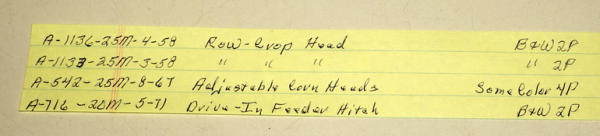 A-1136-25M-4-58 Row-Crop Head B&W 2P
A-1133-25M-3-58 " " " " 2P
A-542-25M-8-67 Adjustable Corn Heads Some Color 4P
A-716-20M-5-71 Drive-In Feeder Hitch B&W 2P